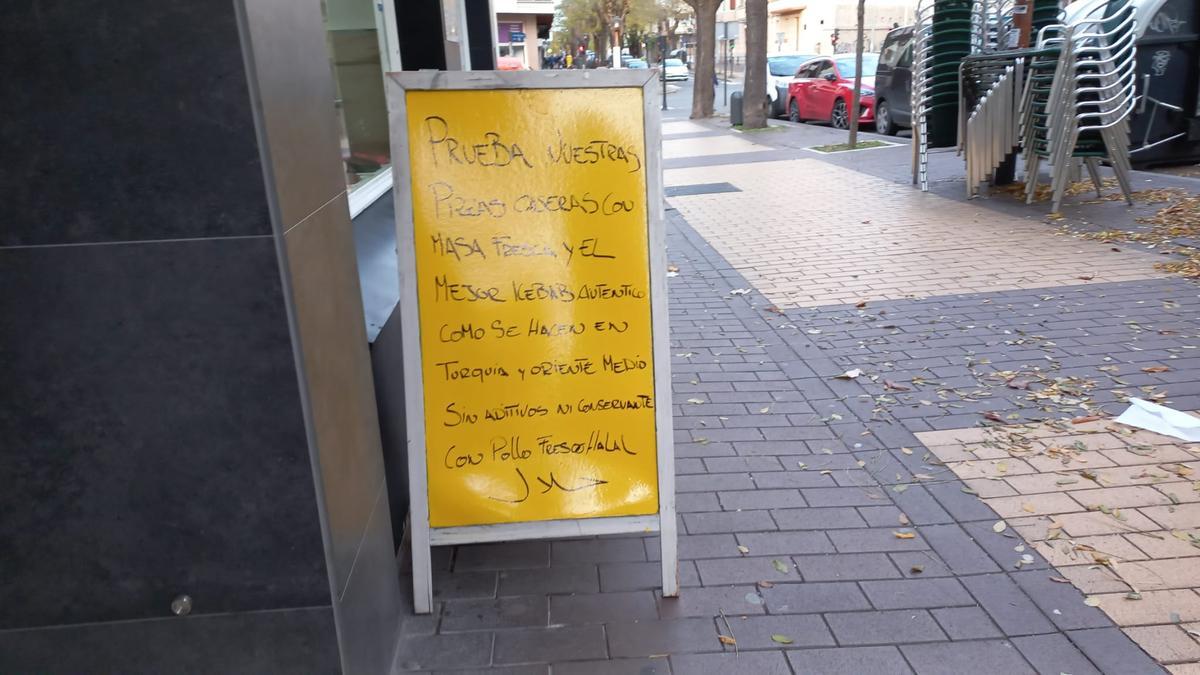 PRUEBA NUESTRAS
PIZZAS CASERAS CON
MASA FRESCA Y EL
MEJOR KEBAB AUTENTICO
COMO SE HACEN EN
TURQUIA Y ORIENTE MEDIO
SIN ADITIVOS NI CONSERVANTE
CON POLLO FRESCO HALAL
حلال